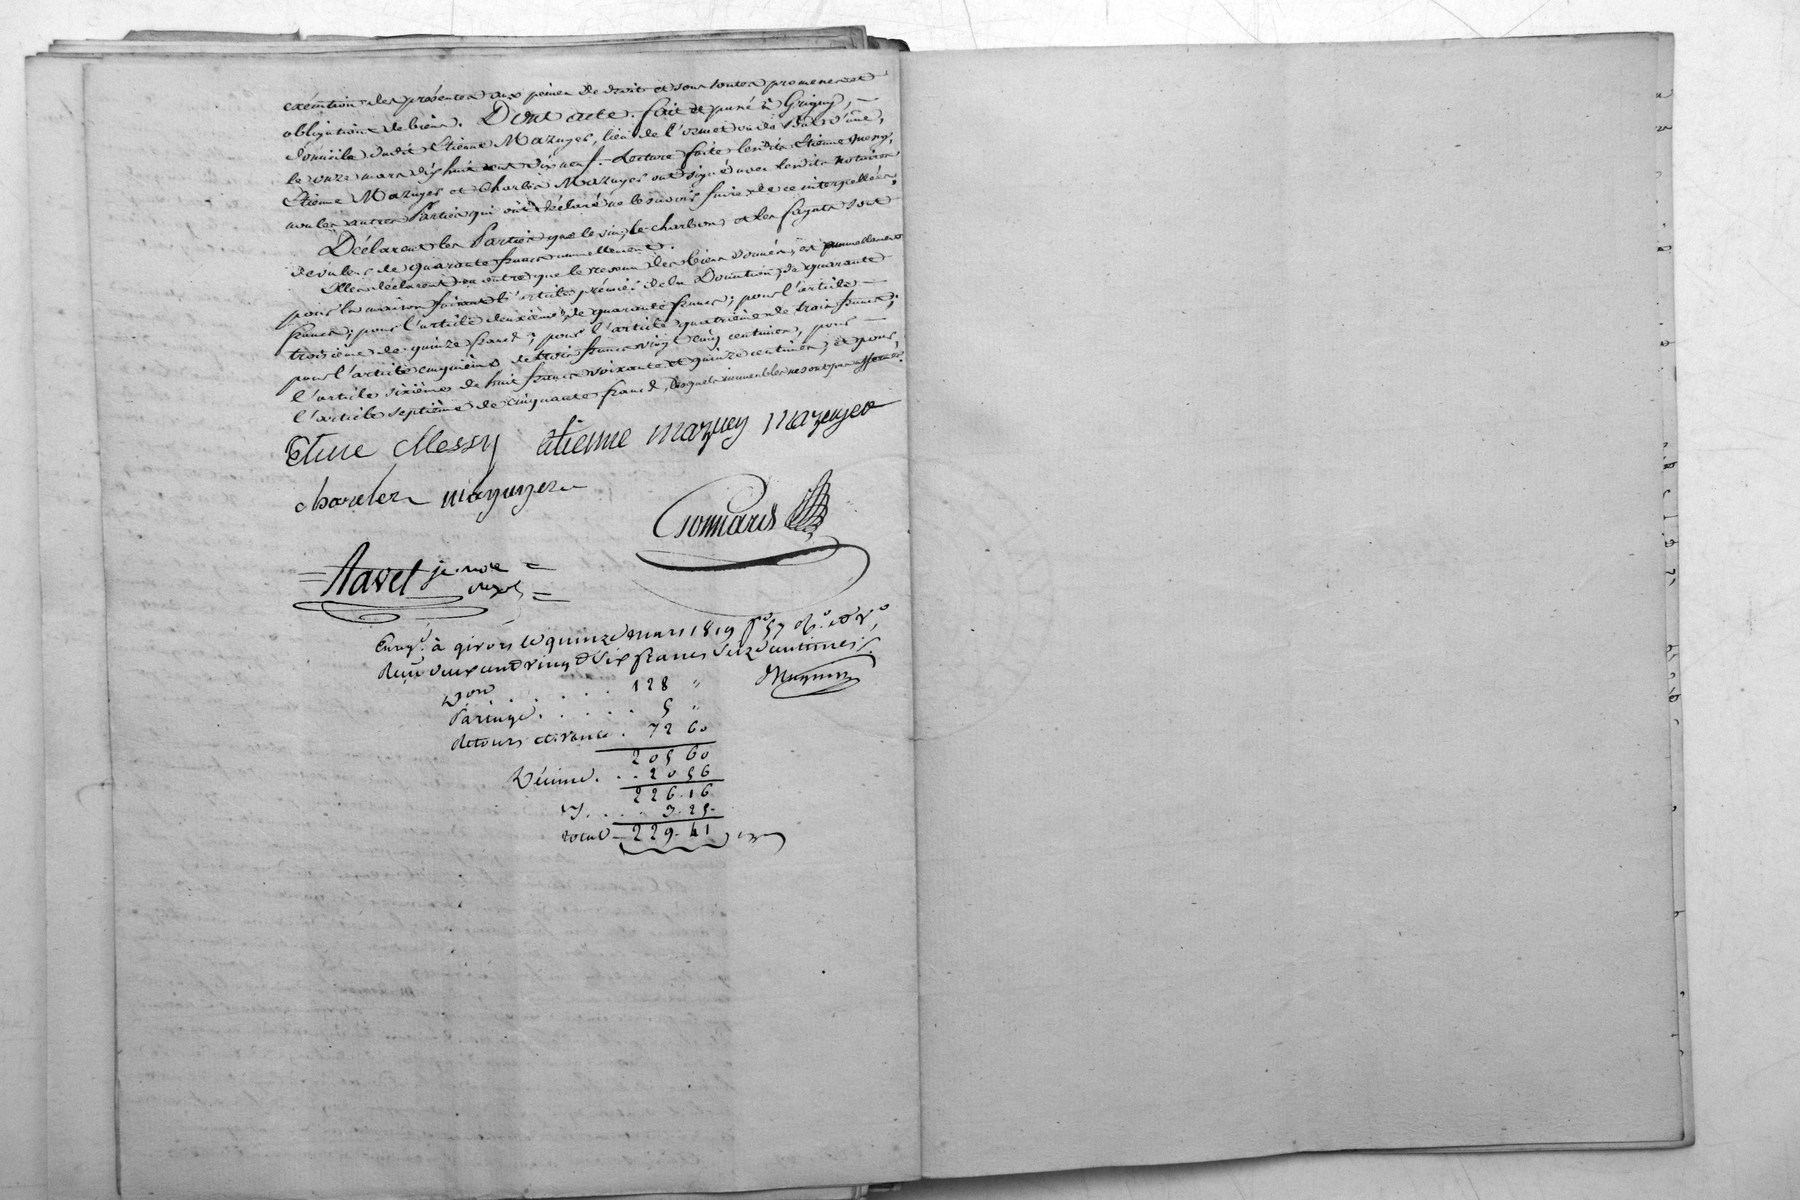 exécution des présentes aux peines de droit et sous toutes promesses et
obligations de biens. Dont acte fait et passé à Grigny,
domicile dudit Etienne Mazuyer, lieu de l'ormet
le onze mars dix huit cent dix neuf. Lecture faite lesdits Etienne Messy,
Etienne Mazuyer et Charles Mazuyer ont signé avec lesdits notaires
non les autres Parties qui ont déclaré ne le savoir faire de ce interpellées.
Déclarent les Parties que le vin, le charbon et les fagots sont
de valeur de quarante francs annuellement.
Elles déclarent en outre que le revenu des biens donnés, est annuellement
pour la maison formant l'article premier de la Donation, de quarante
francs; pour l'article deuxième, de quarante francs; pour l'article
troisième de quinze francs; pour l'article quatrième de trois francs;
pour l'article cinquième de trois francs vingt cinq centimes, pour
l'article sixième de huit francs soixante et quinze centimes; et pour
l'article septième de cinquante francs, lesquels immeubles ne sont pas affermés.
Etiene Messy etienne mazuey mazuyer
charles mazuyer
Gonnard
Ravel
Enreg.é à givors le quinze mars 1819 f.º 57
Reçu deux cent vingt six francs seize centimes.
Don . . . . . 128 "
Partage . . . . . 5 "
Retours 72 60
205 60
Décime . . . 20 56
226.16
3.25
total 229.41